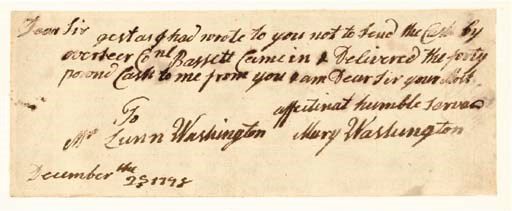 Dear Sir
gest as I had wrote to you not to Send the Cash by
overseer Conl Bassett Came in & Delivered the forty
pound Cash to me from you I am Dear Sir your Most
affectinat humble Servan
To
Mr Lunn Washington Mary Washington
December the